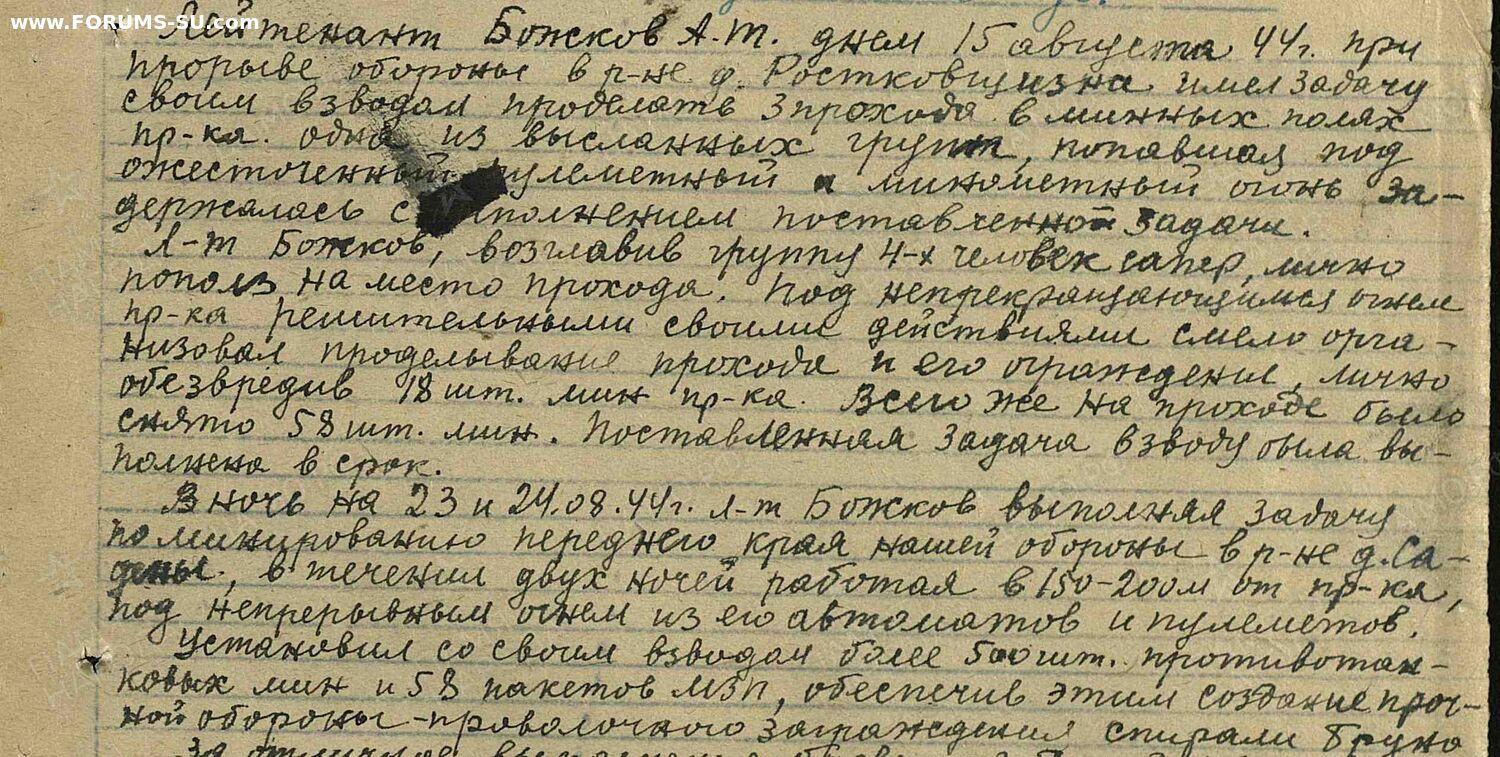 www.FORUMS-SU.com
Лейтенант Божков А.Т. днем 15 августа 44г. при
прорыве обороны в р-не д. Ростковщизна имел задачу
своим взводом проделать 3 прохода в минных полях
пр-ка. Одна из высланных групп, попавшая под
ожесточенный пулеметный и минометный огонь за-
держалась с полнением поставленной задачи.
Л-т Божков, возглавив группу 4-х человек сапер, лично
пополз на место прохода. Под непрекращающимся огнем
пр-ка решительными своими действиями смело орга-
низовал проделывание прохода и его ограждение, лично
обезвредив 18 шт. мин пр-ка. Всего же на проходе было
снято 58 шт. мин. Поставленная задача взводу была вы-
полнена в срок.
В ночь на 23 и 24.08.44г. л-т Божков выполняя задачу
по минированию переднего края нашей обороны в р-не д. Са-
, в течении двух ночей работая в 150-200м от пр-ка,
под непрерывным огнем из его автоматов и пулеметов.
Установил со своим взводом более 500 шт. противотан-
ковых мин и 58 пакетов МЗП, обеспечив этим создание проч-
ной обороны - проволочного заграждения спирали Бруно
За отличное